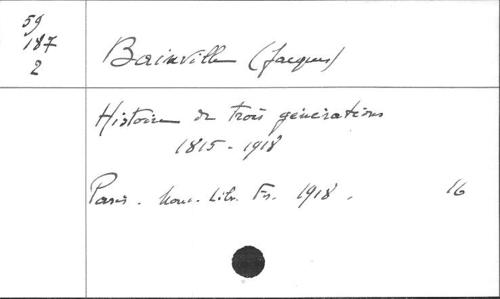 59
187
2
Bainville (Jacques)
Histoire de trois générations
1815-1918
Paris. Nouv. Libr. Fr. 1918. 16